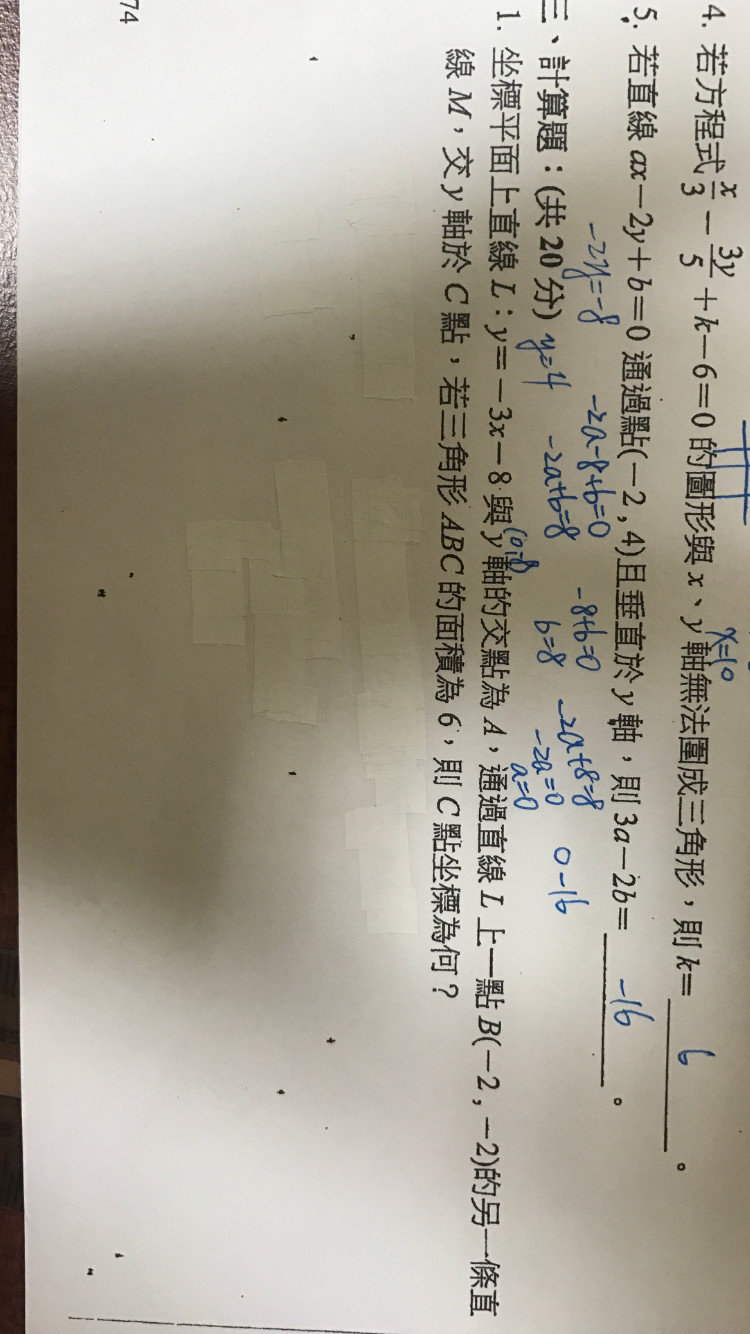 4. 若方程式 x/3 − 3y/5 + k−6=0 的圖形與 x、y 軸無法圍成三角形,則 k= 6 。
x=10
5. 若直線 ax−2y+b=0 通過點(−2 , 4)且垂直於 y 軸,則 3a−2b= −16 。
−2y=−8 −2a−8+b=0 −8+b=0 −2a+8=8 0−16
y=4 −2a+b=8 b=8 −2a=0
a=0
三、計算題:(共 20 分)
(0,−8)
1. 坐標平面上直線 L:y=−3x−8 與 y 軸的交點為 A,通過直線 L 上一點 B(−2 , −2)的另一條直
線 M,交 y 軸於 C 點,若三角形 ABC 的面積為 6,則 C 點坐標為何?
74